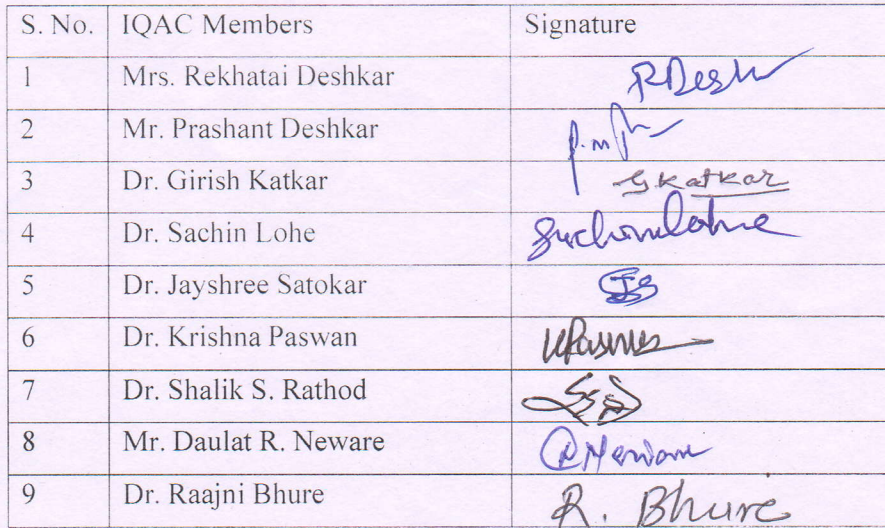 S. No. IQAC Members Signature
1 Mrs. Rekhatai Deshkar RDesh
2 Mr. Prashant Deshkar
3 Dr. Girish Katkar Gkatkar
4 Dr. Sachin Lohe Sachinlohe
5 Dr. Jayshree Satokar
6 Dr. Krishna Paswan
7 Dr. Shalik S. Rathod
8 Mr. Daulat R. Neware
9 Dr. Raajni Bhure R. Bhure